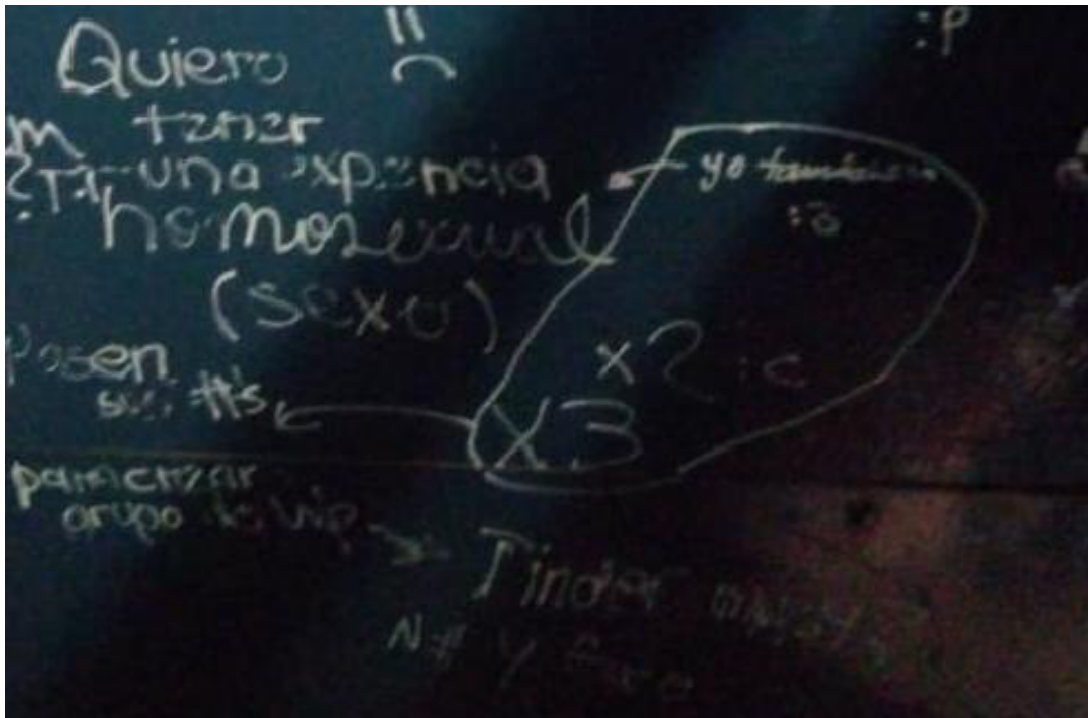 Quiero
:(
:P
tener
una expencia
homosexual
(sexo)
yo tambien
:3
x2 :c
x3
Pasen
sus #'s
para crear
grupo de
Tinder
N# y